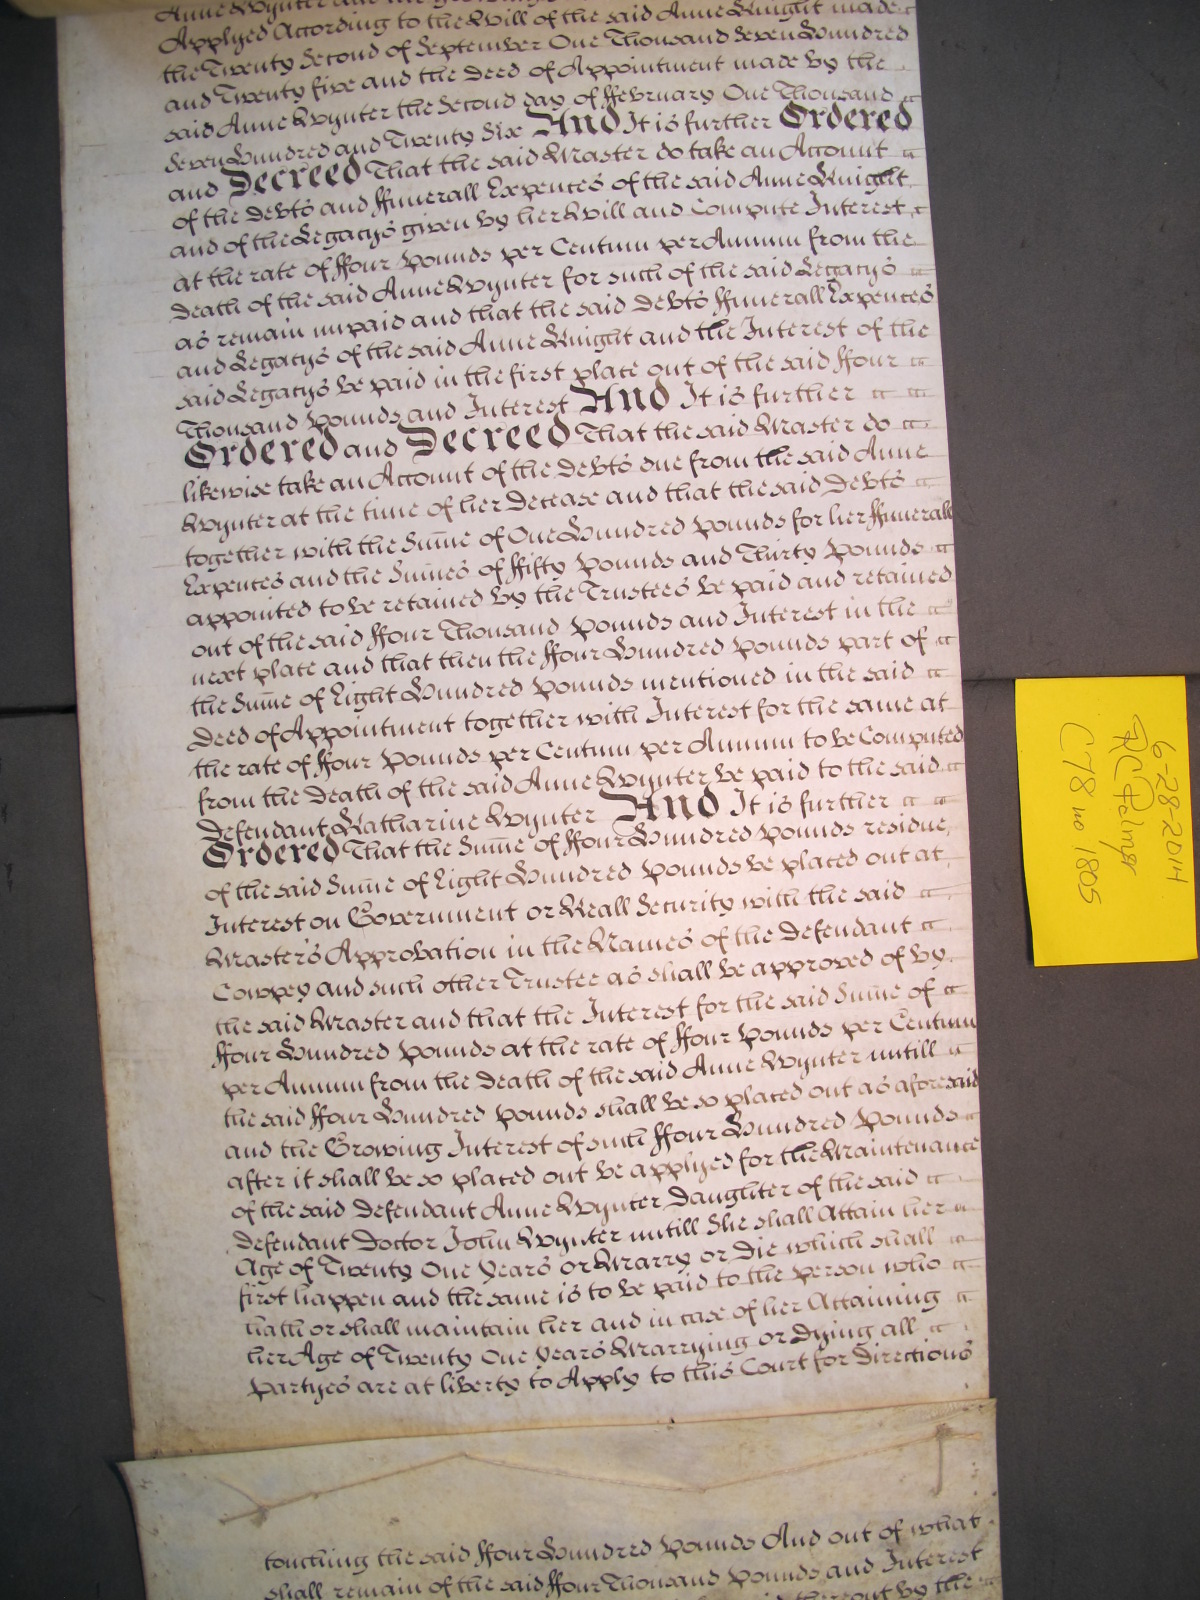 Applyed According to the Will of the said Anne Knight made
the Twenty Second of September One Thousand Seven Hundred
and Twenty five and the Deed of Appointment made by the
said Anne Wynter the Second day of ffebruary One Thousand
Seven Hundred and Twenty Six And It is further Ordered
and Decreed That the said Master do take an Account
of the Debts and ffunerall Expences of the said Anne Knight
and of the Legacys given by her Will and Compute Interest
at the rate of ffour pounds per Centum per Annum from the
death of the said Anne Wynter for such of the said Legacys
as remain unpaid and that the said Debts ffunerall Expences
and Legacys of the said Anne Knight and the Interest of the
said Legacys be paid in the first place out of the said ffour
Thousand pounds and Interest And It is further
Ordered and Decreed That the said Master do
likewise take an Account of the Debts due from the said Anne
Wynter at the time of her Decease and that the said Debts
together with the Sum̄e of One Hundred pounds for her ffunerall
Expences and the Sum̄es of ffifty pounds and Thirty pounds
appointed to be retained by the Trustees be paid and retained
out of the said ffour Thousand pounds and Interest in the
next place and that then the ffour Hundred pounds part of
the Sum̄e of Eight Hundred pounds mentioned in the said
Deed of Appointment together with Interest for the same at
the rate of ffour pounds per Centum per Annum to be Computed
from the Death of the said Anne Wynter be paid to the said
Defendant Katharine Wynter And It is further
Ordered That the Sum̄e of ffour Hundred pounds residue
of the said Sum̄e of Eight Hundred pounds be placed out at
Interest on Government or Reall Security with the said
Master's Approbation in the Names of the Defendant
Cowpey and such other Trustee as shall be approved of by
the said Master and that the Interest for the said Sum̄e of
ffour Hundred pounds at the rate of ffour pounds per Centum
per Annum from the Death of the said Anne Wynter untill
the said ffour Hundred pounds shall be so placed out as aforesaid
and the Growing Interest of such ffour Hundred pounds
after it shall be so placed out be applyed for the Maintenance
of the said Defendant Anne Wynter Daughter of the said
Defendant Doctor John Wynter untill She shall Attain her
Age of Twenty One Years or Marry or Die which shall
first happen and the same is to be paid to the person who
hath or shall maintain her and in case of her Attaining
her Age of Twenty One Years Marrying or Dying all
partyes are at liberty to Apply to this Court for Directions
touching the said ffour Hundred pounds And out of what
shall remain of the said ffour Thousand pounds and Interest
thereout by the
6-28-2014
C78 no 1805